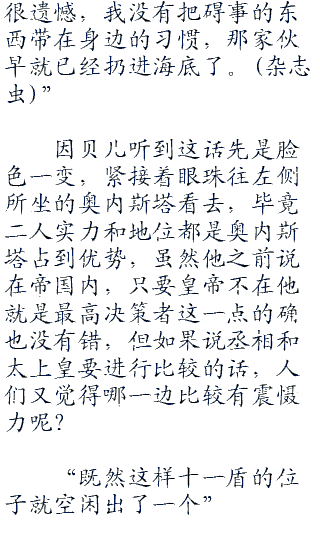 很遗憾，我没有把碍事的东
西带在身边的习惯，那家伙
早就已经扔进海底了。(杂志
虫)”
因贝儿听到这话先是脸
色一变，紧接着眼珠往左侧
所坐的奥内斯塔看去，毕竟
二人实力和地位都是奥内斯
塔占到优势，虽然他之前说
在帝国内，只要皇帝不在他
就是最高决策者这一点的确
也没有错，但如果说丞相和
太上皇要进行比较的话，人
们又觉得哪一边比较有震慑
力呢？
“既然这样十一盾的位
子就空闲出了一个”